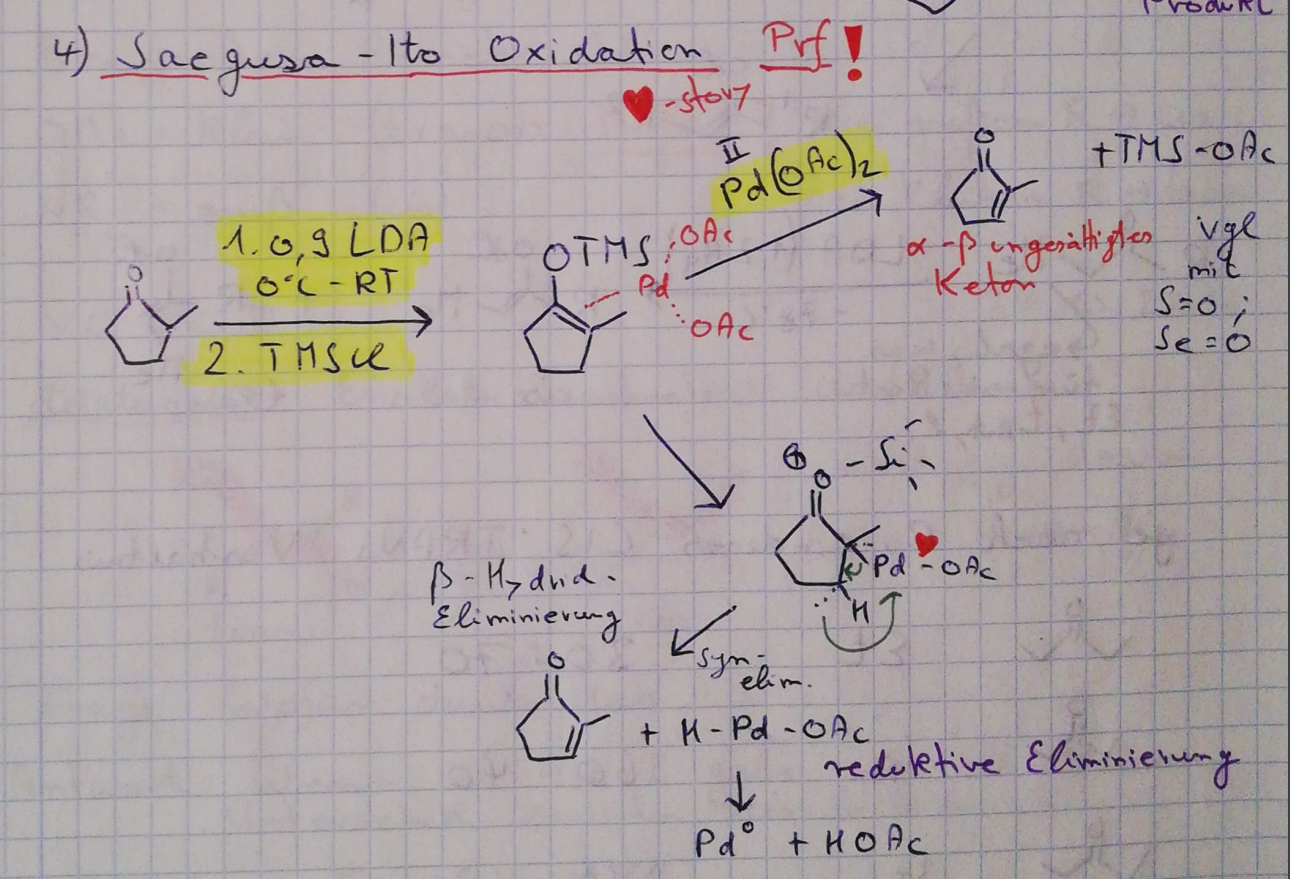 Produkt
4) Saegusa-Ito Oxidation Prf!
♥-story
II
Pd(OAc)2
O
+TMS-OAc
1. 0,9 LDA
0°C-RT
2. TMSCl
O
OTMS
OAc
Pd
OAc
α-β ungesättigtes
Keton
vgl
mit
S=O ;
Se=O
⊕
O - Si
♥
Pd - OAc
H
β-Hydrid-
Eliminierung
syn-
elim.
O
+ H-Pd-OAc
reduktive Eliminierung
Pd⁰ + HOAc